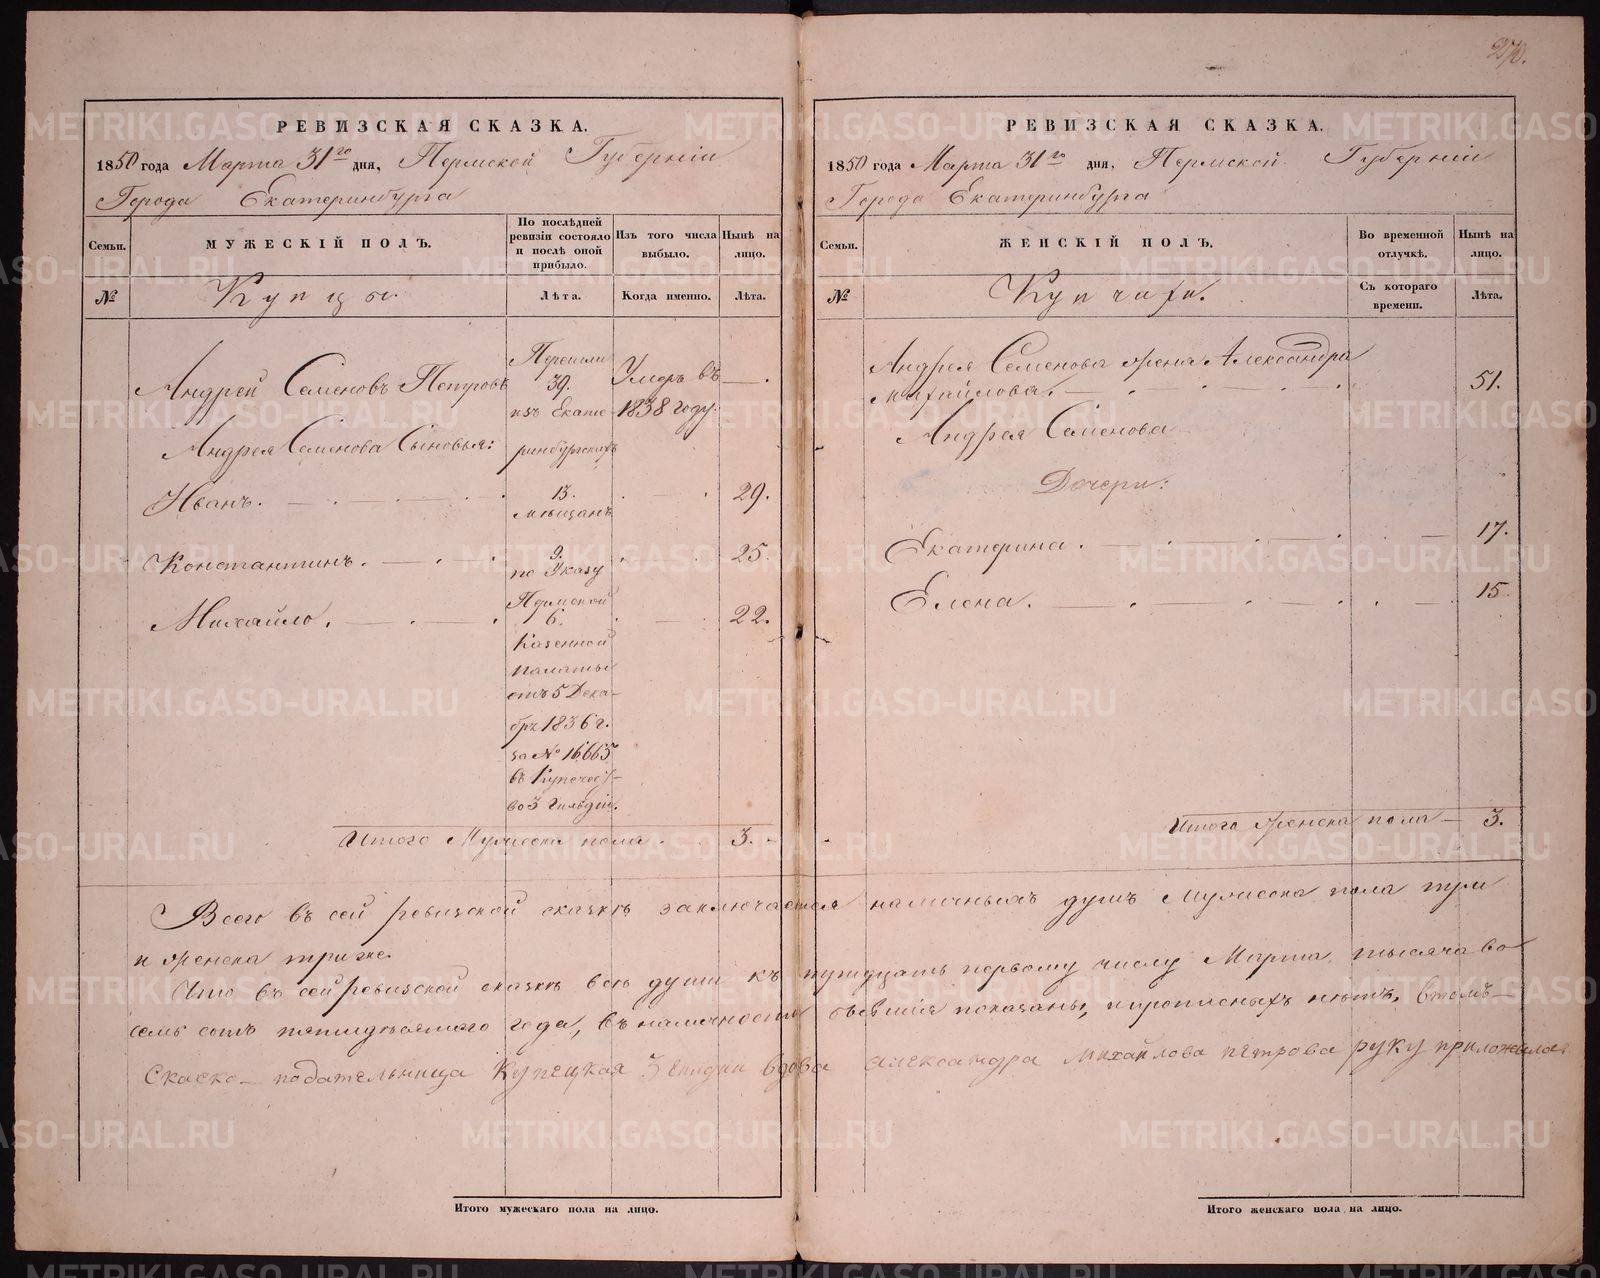 270.
РЕВИЗСКАЯ СКАЗКА.
1850 года Марта 31го дня, Пермской Губерніи
Города Екатеринбурга
Семьи.
МУЖЕСКІЙ ПОЛЪ.
По послѣдней ревизіи состояло и послѣ оной прибыло.
Изъ того числа выбыло.
Нынѣ на лицо.
№
Купцы.
Лѣта.
Когда именно.
Лѣта.
Андрей Семеновъ Петровъ
39.
Умеръ въ 1838 году.
Андрея Семенова Сыновья:
Иванъ.
13.
29.
Константинъ.
9.
25.
Михайло.
6.
22.
Перешли
изъ Екате-
ринбургскихъ
мѣщанъ
по Указу
Пермской
Казенной
палаты
отъ 5 Дека-
бря 1836 г.
за № 16,665
въ Купечест-
во 3 гильдіи.
Итого Мужеска пола 3.
РЕВИЗСКАЯ СКАЗКА.
1850 года Марта 31го дня, Пермской Губерніи
Города Екатеринбурга
Семьи.
ЖЕНСКІЙ ПОЛЪ.
Во временной отлучкѣ.
Нынѣ на лицо.
№
Купчихи.
Съ котораго времени.
Лѣта.
Андрея Семенова жена Александра
Михайлова.
51.
Андрея Семенова
Дочери:
Екатерина.
17.
Елена.
15.
Итого женска пола 3.
Всего въ сей ревизской сказкѣ заключается наличныхъ душъ Мужеска пола три
и женска три же.
Что въ сей Ревизской сказкѣ всѣ души къ тридцать первому числу Марта тысяча во
семь сотъ пятидесятаго года, въ наличности бывшія показаны, и прописныхъ нѣтъ, втомъ
Скаско-подательница Купецкая 3 гилдии вдова александра Михайлова петрова руку приложила
Итого мужескаго пола на лицо.
Итого женскаго пола на лицо.
METRIKI.GASO-URAL.RU